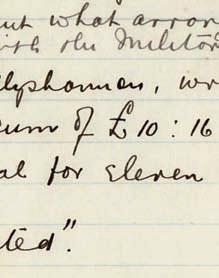 out what arran
with the Militar
llyshannon, wr
sum of £10:16
al for eleven
ted".